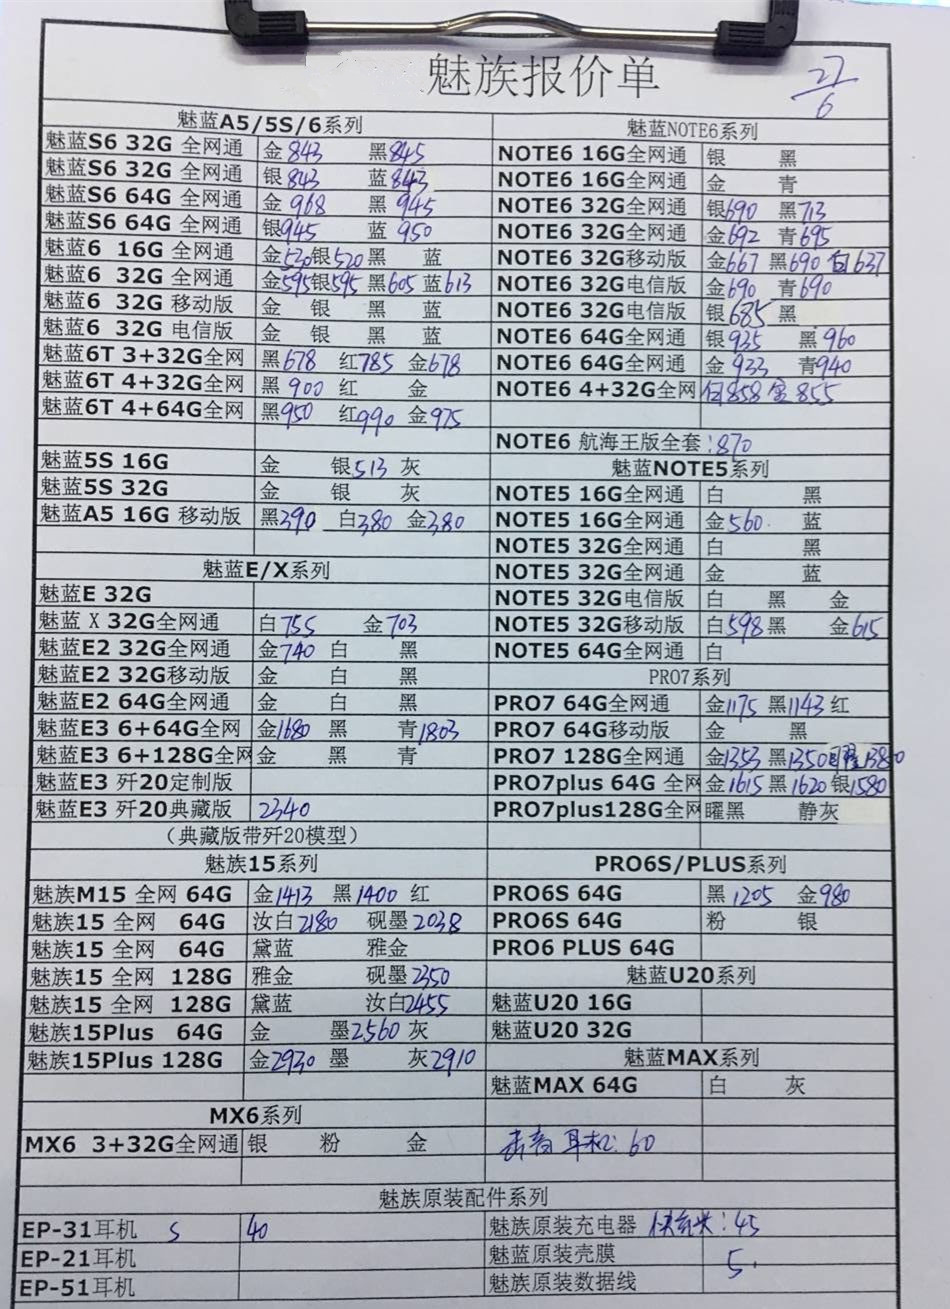 魅族报价单
27/6
魅蓝A5/5S/6系列
魅蓝S6 32G 全网通 金843 黑845
魅蓝S6 32G 全网通 银843 蓝843
魅蓝S6 64G 全网通 金968 黑945
魅蓝S6 64G 全网通 银945 蓝950
魅蓝6 16G 全网通 金520银520黑 蓝
魅蓝6 32G 全网通 金595银595 黑605 蓝613
魅蓝6 32G 移动版 金 银 黑 蓝
魅蓝6 32G 电信版 金 银 黑 蓝
魅蓝6T 3+32G全网 黑678 红785 金678
魅蓝6T 4+32G全网 黑900 红 金
魅蓝6T 4+64G全网 黑950 红990 金975
魅蓝5S 16G 金 银513 灰
魅蓝5S 32G 金 银 灰
魅蓝A5 16G 移动版 黑390 白380 金380
魅蓝E/X系列
魅蓝E 32G
魅蓝 X 32G全网通 白755 金703
魅蓝E2 32G全网通 金740 白 黑
魅蓝E2 32G移动版 金 白 黑
魅蓝E2 64G全网通 金 白 黑
魅蓝E3 6+64G全网 金1680 黑 青1803
魅蓝E3 6+128G全网 金 黑 青
魅蓝E3 歼20定制版
魅蓝E3 歼20典藏版 2340
(典藏版带歼20模型)
魅族15系列
魅族M15 全网 64G 金1413 黑1400 红
魅族15 全网 64G 汝白2180 砚墨2038
魅族15 全网 64G 黛蓝 雅金
魅族15 全网 128G 雅金 砚墨2350
魅族15 全网 128G 黛蓝 汝白2455
魅族15Plus 64G 金 墨2560 灰
魅族15Plus 128G 金2930 墨 灰2910
MX6系列
MX6 3+32G全网通 银 粉 金
魅蓝NOTE6系列
NOTE6 16G全网通 银 黑
NOTE6 16G全网通 金 青
NOTE6 32G全网通 银690 黑713
NOTE6 32G全网通 金692 青695
NOTE6 32G移动版 金667 黑690 白637
NOTE6 32G电信版 金690 青690
NOTE6 32G电信版 银685 黑
NOTE6 64G全网通 银935 黑960
NOTE6 64G全网通 金933 青940
NOTE6 4+32G全网 白858 金855
NOTE6 航海王版全套:870
魅蓝NOTE5系列
NOTE5 16G全网通 白 黑
NOTE5 16G全网通 金560. 蓝
NOTE5 32G全网通 白 黑
NOTE5 32G全网通 金 蓝
NOTE5 32G电信版 白 黑 金
NOTE5 32G移动版 白598黑 金615
NOTE5 64G全网通 白
PRO7系列
PRO7 64G全网通 金1175 黑1143 红
PRO7 64G移动版 金 黑
PRO7 128G全网通 金1353 黑1350 1380
PRO7plus 64G 全网 金1615 黑1620 银1580
PRO7plus128G全网 曜黑 静灰
PRO6S/PLUS系列
PRO6S 64G 黑1205 金980
PRO6S 64G 粉 银
PRO6 PLUS 64G
魅蓝U20系列
魅蓝U20 16G
魅蓝U20 32G
魅蓝MAX系列
魅蓝MAX 64G 白 灰
耳机:60
魅族原装配件系列
EP-31耳机 S 40
EP-21耳机
EP-51耳机
魅族原装充电器 快充头:45
魅蓝原装壳膜 5.
魅族原装数据线